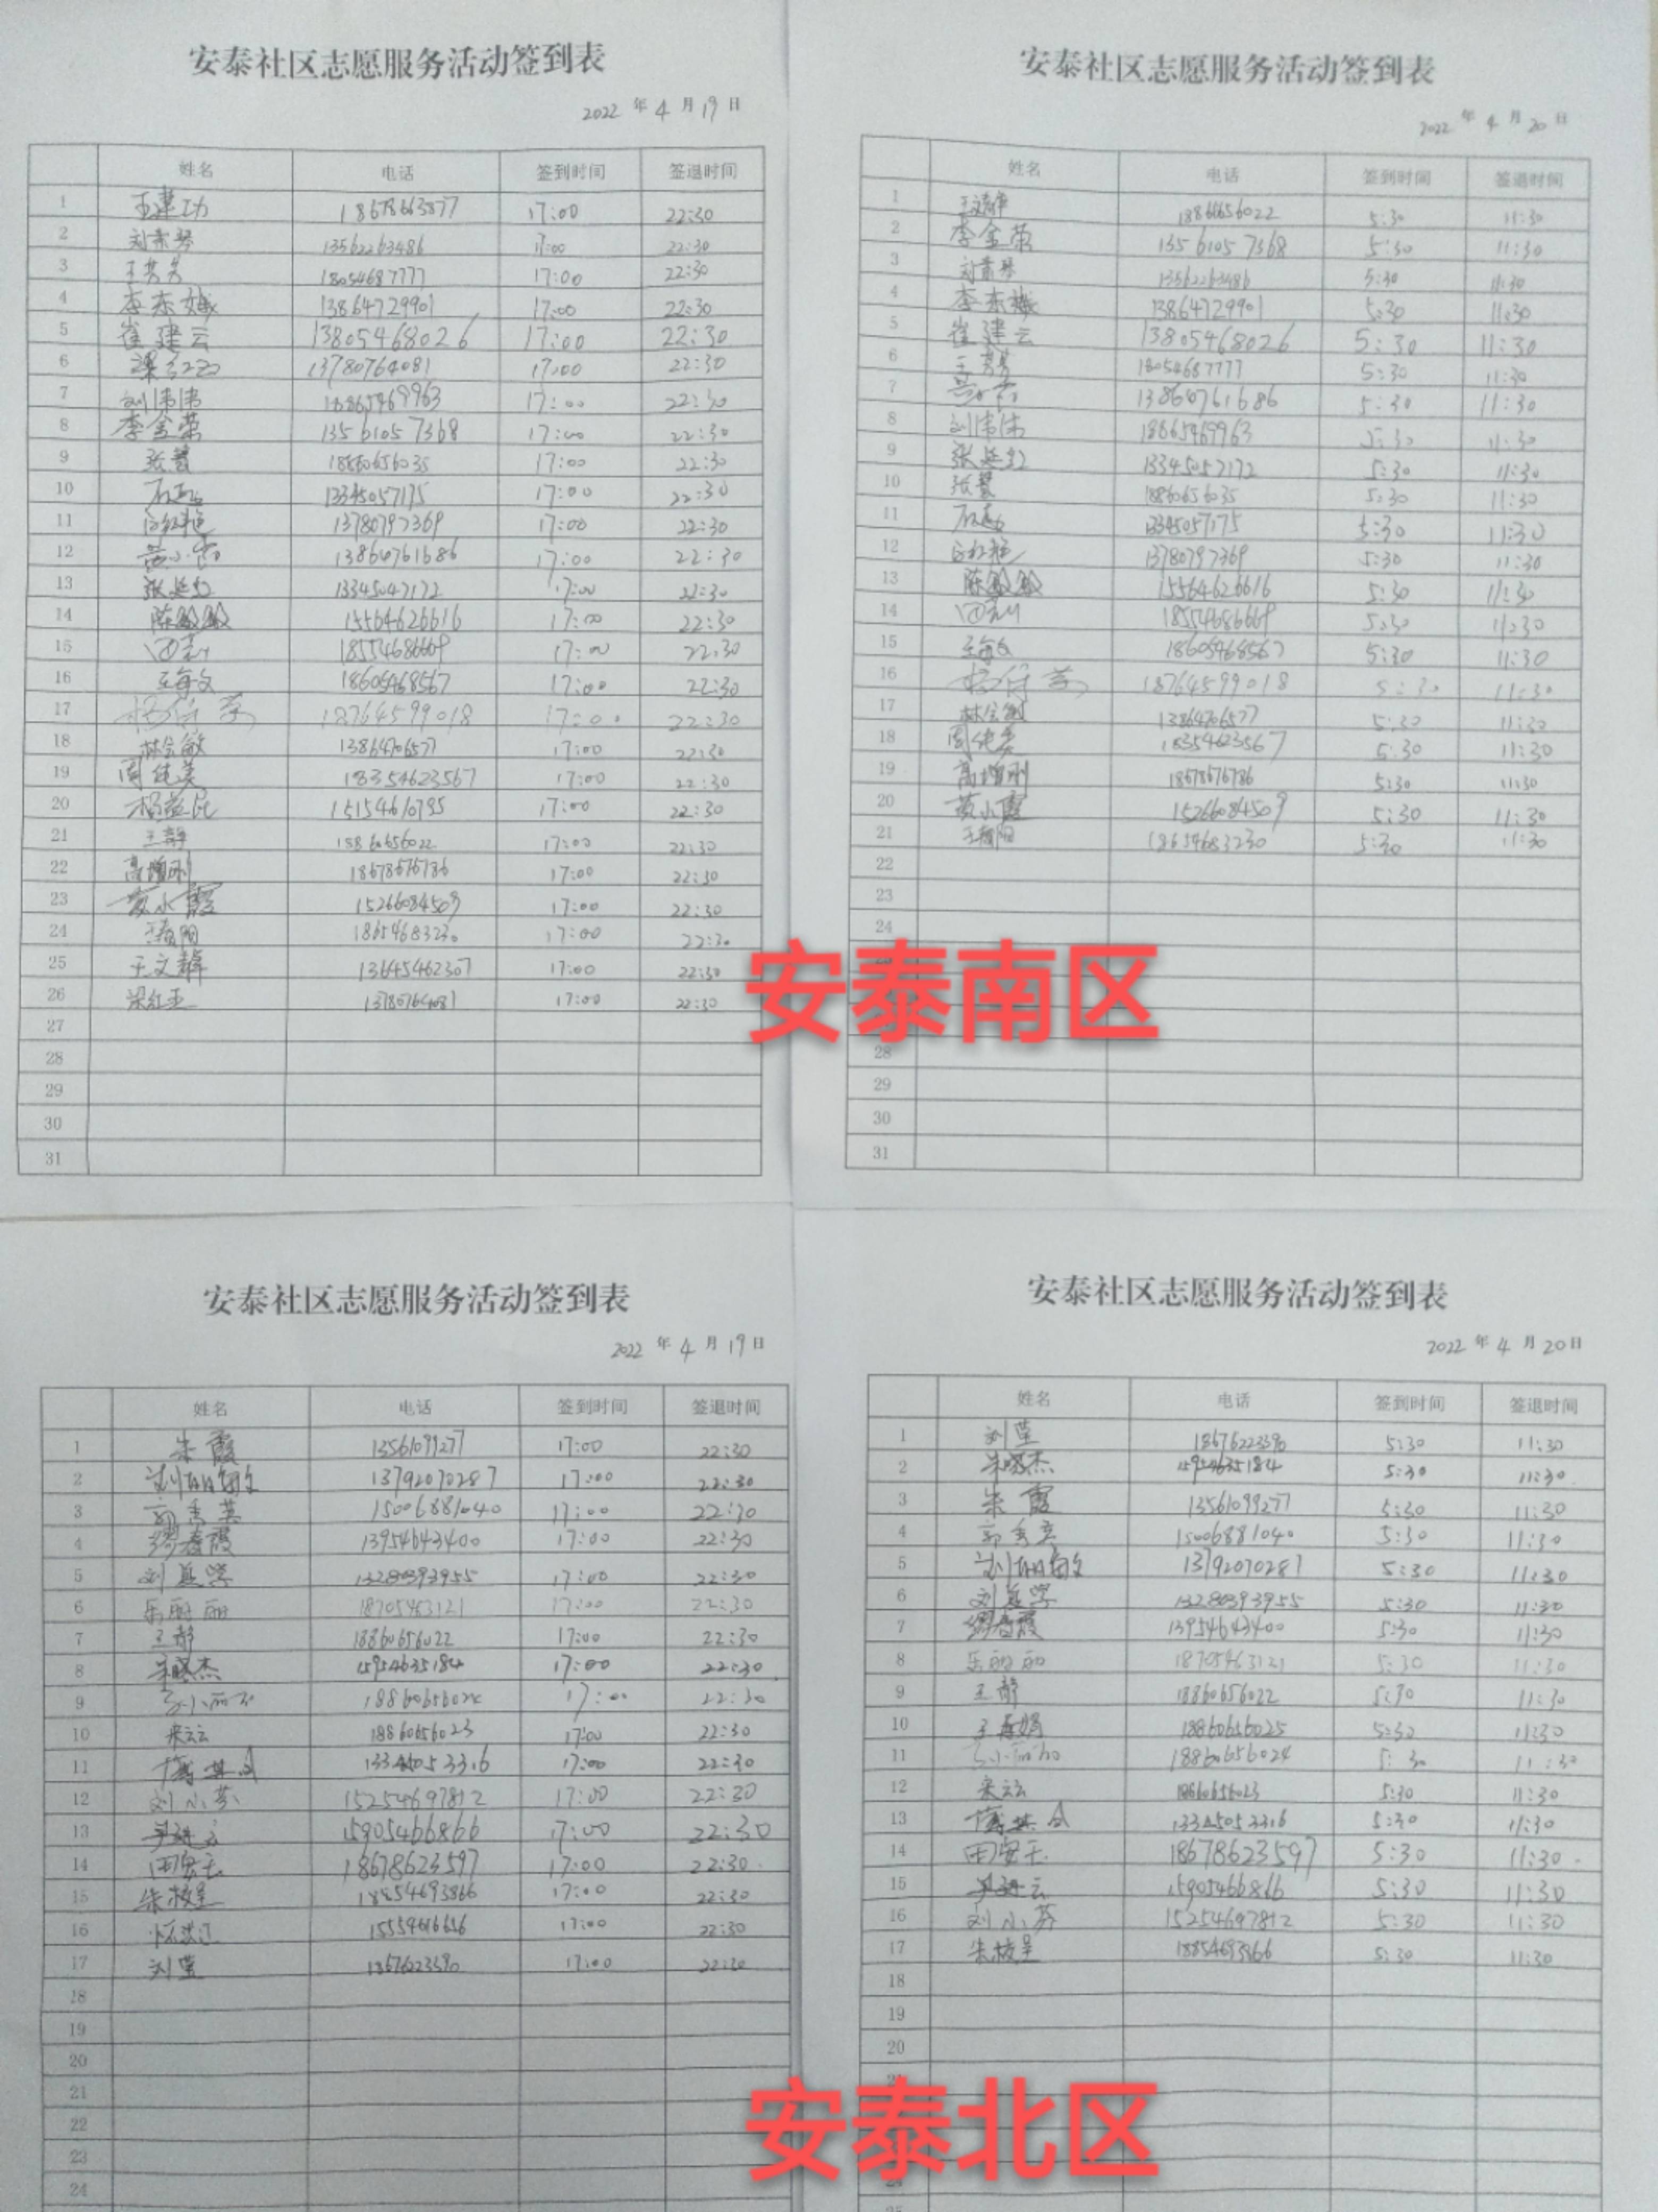 安泰社区志愿服务活动签到表
2022 年 4 月 19 日
姓名 电话 签到时间 签退时间
1 王建功 18678663877 17:00 22:30
2 刘素琴 13562263486 17:00 22:30
3 王芳芳 18054687777 17:00 22:30
4 李东娥 13864729901 17:00 22:30
5 崔建云 13805468026 17:00 22:30
6 13780764081 17:00 22:30
7 刘伟伟 18865469963 17:00 22:30
8 李金荣 13561057368 17:00 22:30
9 张慧 18860656035 17:00 22:30
10 13345057175 17:00 22:30
11 13780797369 17:00 22:30
12 13864761686 17:00 22:30
13 张延红 13345047172 17:00 22:30
14 陈敏敏 15564626616 17:00 22:30
15 18554686669 17:00 22:30
16 王海文 18605468567 17:00 22:30
17 18764599018 17:00 22:30
18 林会敏 13864706577 17:00 22:30
19 周纯美 18354623567 17:00 22:30
20 杨益民 17:00 22:30
21 王静 17:00 22:30
22 高增刚 18678676786 17:00 22:30
23 黄小霞 15266084509 17:00 22:30
24 18654683230 17:00 22:30
25 王文静 13645462307 17:00 22:30
26 梁红玉 13780764081 17:00 22:30
27
28
29
30
31
安泰社区志愿服务活动签到表
2022 年 4 月 20 日
姓名 电话 签到时间 签退时间
1 18866656022 5:30 11:30
2 李金荣 13561057368 5:30 11:30
3 刘素琴 13562263486 5:30 11:30
4 李东娥 13864729901 5:30 11:30
5 崔建云 13805468026 5:30 11:30
6 王芳芳 18054687777 5:30 11:30
7 13864761686 5:30 11:30
8 刘伟伟 18865469963 5:30 11:30
9 张延红 13345057172 5:30 11:30
10 张慧 18860656035 5:30 11:30
11 13345057175 5:30 11:30
12 13780797369 5:30 11:30
13 陈敏敏 15564626616 5:30 11:30
14 18554686669 5:30 11:30
15 王海文 18605468567 5:30 11:30
16 18764599018 5:30 11:30
17 林会敏 13864706577 5:30 11:30
18 周纯美 18354623567 5:30 11:30
19 高增刚 18678676786 5:30 11:30
20 黄小霞 15266084509 5:30 11:30
21 18654683230 5:30 11:30
22
23
24
28
29
30
31
安泰南区
安泰社区志愿服务活动签到表
2022 年 4 月 19 日
姓名 电话 签到时间 签退时间
1 朱霞 13561099277 17:00 22:30
2 刘明翰文 13792070287 17:00 22:30
3 郭秀英 15006881040 17:00 22:30
4 缪春霞 13954643400 17:00 22:30
5 刘益学 13280393955 17:00 22:30
6 乐丽丽 18705463121 17:00 22:30
7 王静 18860656022 17:00 22:30
8 朱晓杰 15954635184 17:00 22:30
9 18860656024 17:00 22:30
10 宋云云 18860656023 17:00 22:30
11 13345053316 17:00 22:30
12 刘小芬 15254697812 17:00 22:30
13 15905466866 17:00 22:30
14 田安玉 18678623597 17:00 22:30
15 朱校星 18854693866 17:00 22:30
16 17:00 22:30
17 刘莹 18676223390 17:00 22:30
18
19
20
21
22
23
24
安泰社区志愿服务活动签到表
2022 年 4 月 20 日
姓名 电话 签到时间 签退时间
1 刘莹 18676223390 5:30 11:30
2 朱晓杰 15954635184 5:30 11:30
3 朱霞 13561099277 5:30 11:30
4 郭秀英 15006881040 5:30 11:30
5 刘明翰文 13792070287 5:30 11:30
6 刘益学 13280393955 5:30 11:30
7 缪春霞 13954643400 5:30 11:30
8 乐丽丽 18705463121 5:30 11:30
9 王静 18860656022 5:30 11:30
10 18860656025 5:30 11:30
11 18860656024 5:30 11:30
12 宋云云 18860656023 5:30 11:30
13 13345053316 5:30 11:30
14 田安玉 18678623597 5:30 11:30
15 15905466866 5:30 11:30
16 刘小芬 15254697812 5:30 11:30
17 朱校星 18854693866 5:30 11:30
18
19
20
安泰北区